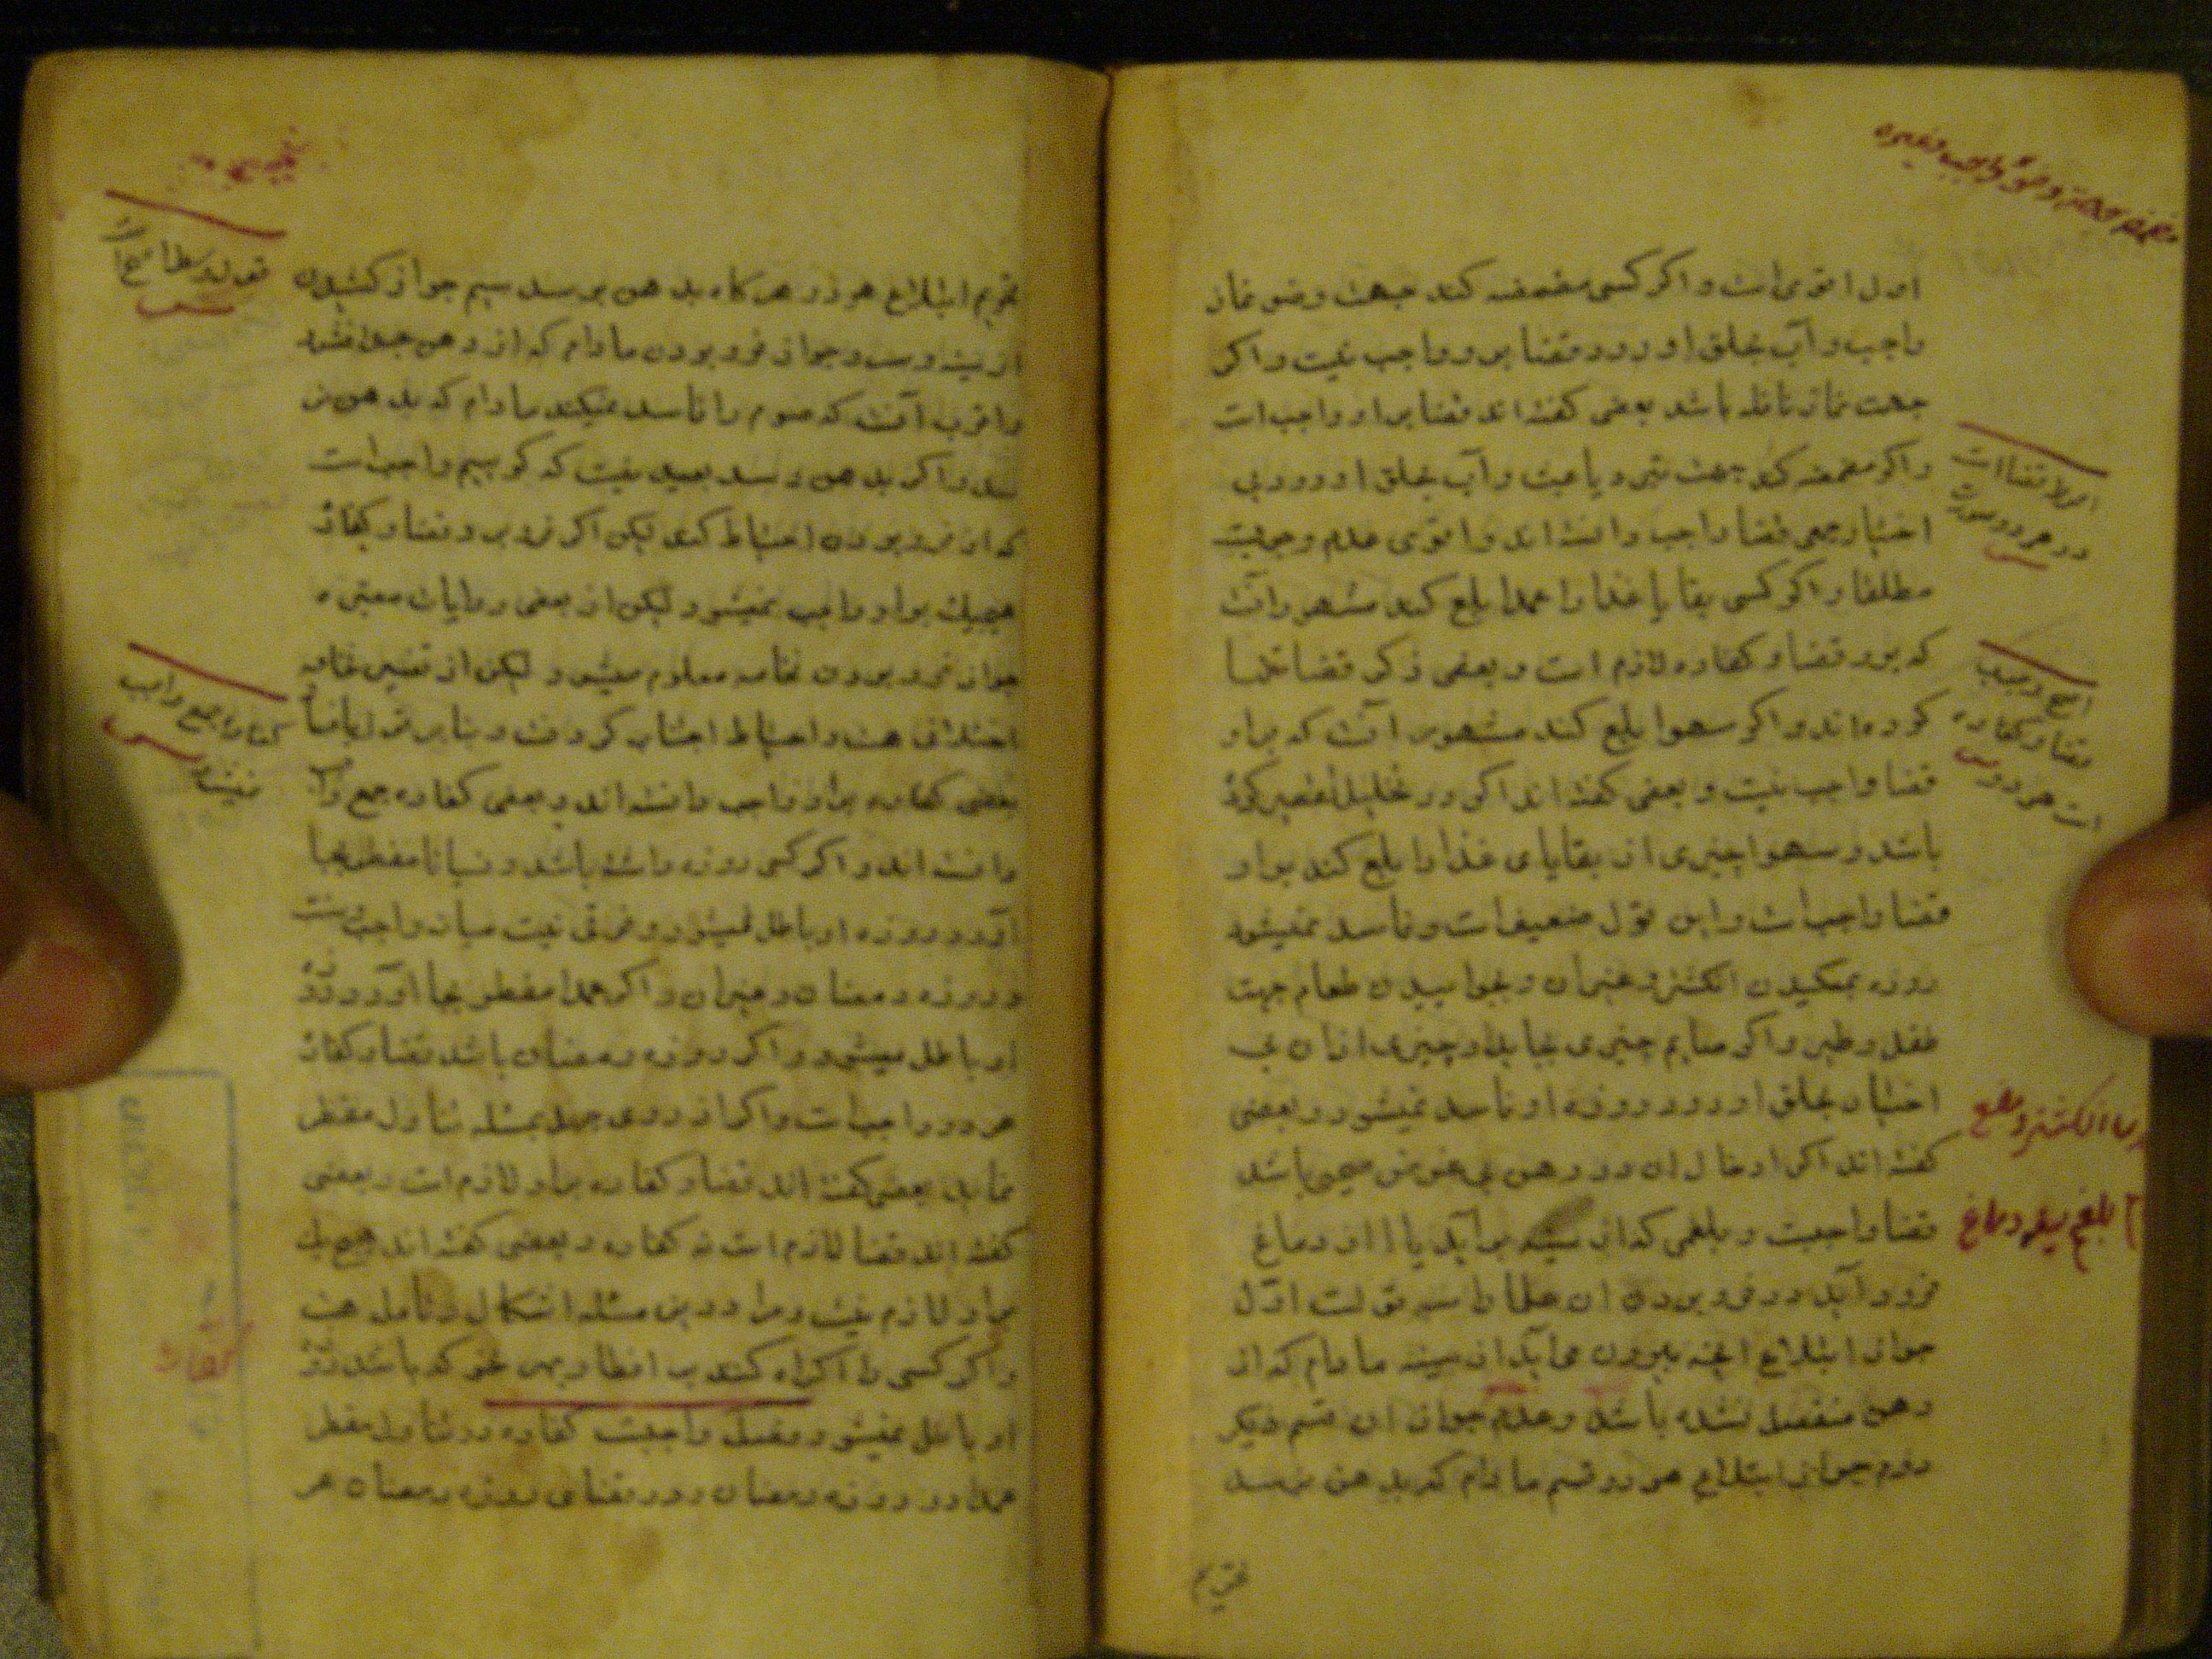 مضمضه جهة وضوء واجب و غیره
اول اقوی است و اکر کسی مضمضه کند جهت وضو نماز
واجب و آب بحلق او رود قضا بر و واجب نیست و اکر
جهت نماز نافله باشد بعضی کفته اند قضا بر او واجب است
و اکر مضمضه کند جهت تبرد یا عبث و آب بحلق او رود بی
اختیار جمعی قضا واجب دانسته اند و اقوی عدم وجوبست
مطلقا و اکر کسی بقایا غذا را عمدا بلع کند مشهور آنست
که برو قضا و کفاره لازم است و بعضی ذکر قضا تنها
کرده اند و اکر سهوا بلع کند مشهور آنست که بر او
قضا واجب نیست و بعضی کفته اند اکر در تخلیل تقصیر کرده
باشد و سهوا چیزی از بقایای غذا را بلع کند بر او
قضا واجب است و این قول ضعیف است و فاسد نمیشود
روزه بمکیدن انکشتر و غیر آن و بخواییدن طعام جهت
طفل و طیر و اکر صایم چیزی بخاید و چیزی از آن بی
اختیار بحلق او رود روزه او فاسد نمیشود و بعضی
کفته اند اکر ادخال آن در دهن بی غرض صحیح باشد
قضا واجبست و بلغمی که از سینه بر آید یا از دماغ
فرود آید در فرو بردن آن علما را سه قولست اول
جواز ابتلاع آنچه بیرون می آید از سینه مادام که از
دهن منفصل نشده باشد و عدم جواز آن قسم دیکر
دوم جواز ابتلاع هر دو قسم مادام که بدهن نرسد
تحریم
احوط قضا است
در هر دو صورت
اصح وجوب
قضا و کفاره
است هر دو
بلغم سینه و دماغ
تحریم ابتلاع هر دو هرکاه بدهن برسد سیم جواز کشیدن
از سینه و سر و جواز فرو بردن مادام که از دهن جدا نشود
و اقرب آنست که صوم را فاسد نمیکند مادام که بدهن نر
سد و اکر بدهن رسد بعید نیست که کوییم واجب است
که از فرو بردن احتیاط کند لیکن اکر فرو برد قضا و کفاره
هیچیک بر او واجب نمیشود لیکن از بعضی روایات معتبره
جواز فرو بردن نخامه معلوم میشود لیکن از تفسیر نخامه
اختلافی هست و احتیاط اجتناب کردنست و بنابر قول بافساد
بعضی کفاره بر او واجب دانسته اند و بعضی کفاره جمع واجب
دانسته اند و اکر کسی روزه داشته باشد و نسیانا مفطر بجا
آورد روزه او باطل نمیشود و فرقی نیست میان واجب و سنت
و روزه رمضان و غیر آن و اکر عمدا مفطر بجا آورد روزه
او باطل میشود و اکر روزه رمضان باشد قضا و کفاره
هر دو واجب است و اکر از روی جهل بمسئله تناول مفطر
نماید بعضی کفته اند قضا و کفاره بر او لازم است و بعضی
کفته اند قضا لازم است نه کفاره و بعضی کفته اند هیچ یک
بر او لازم نیست و مرا در این مسئله اشکال و تامل هست
و اکر کسی را اکراه کنند بر افطار بهر نحو که باشد روزه
او باطل نمیشود فصل واجبست کفاره در تناول مفطر
عمدا در روزه رمضان و در قضای روزه رمضان هر
کفاره